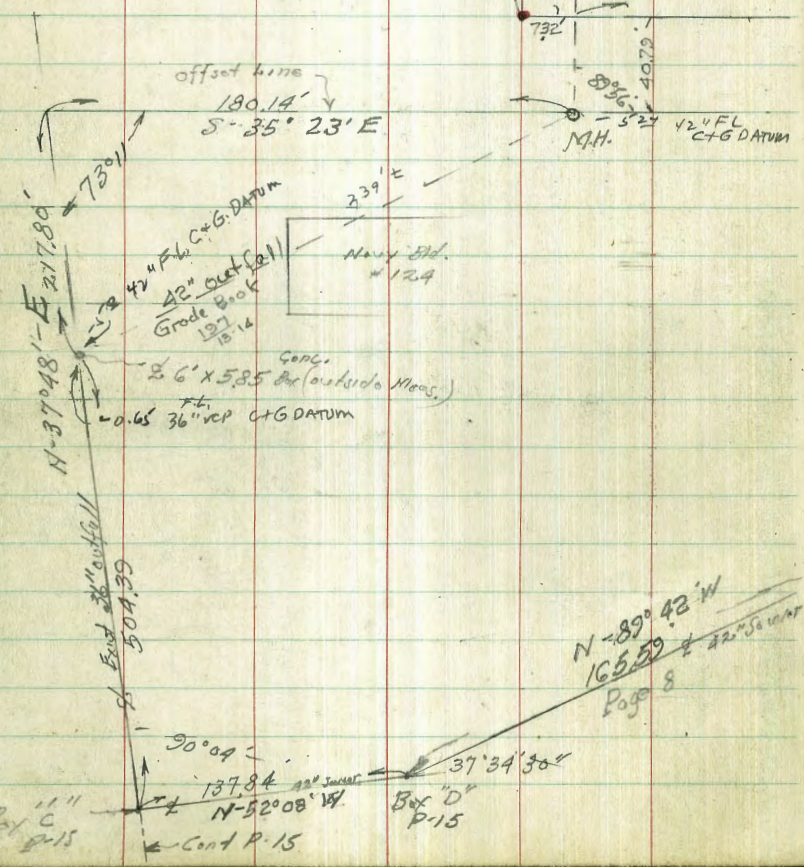 732
40.79'
offset Line
180.14'
S-35° 23' E
89°56'
5.24
42" FL
C+G DATUM
M.H.
73°11'
339' ±
217.80'
N-37°48'-E
42" F.L. C+G. DATUM
42" outfall
Grade Book
197
13-14
Navy Bld.
# 124
Conc.
℄ 6' X 5.85 Box (outside Meas.)
-0.65 F.L. 36" VCP C+G DATUM
℄ Exist 36" outfall
504.39
N-89° 42' W
165.59'
℄ 42" Sewer
Page 8
90°04'
137.84
42" Sewer
37°34'30"
N-52°08' W.
Box "D"
P-15
Box "C"
P-15
Cont P-15